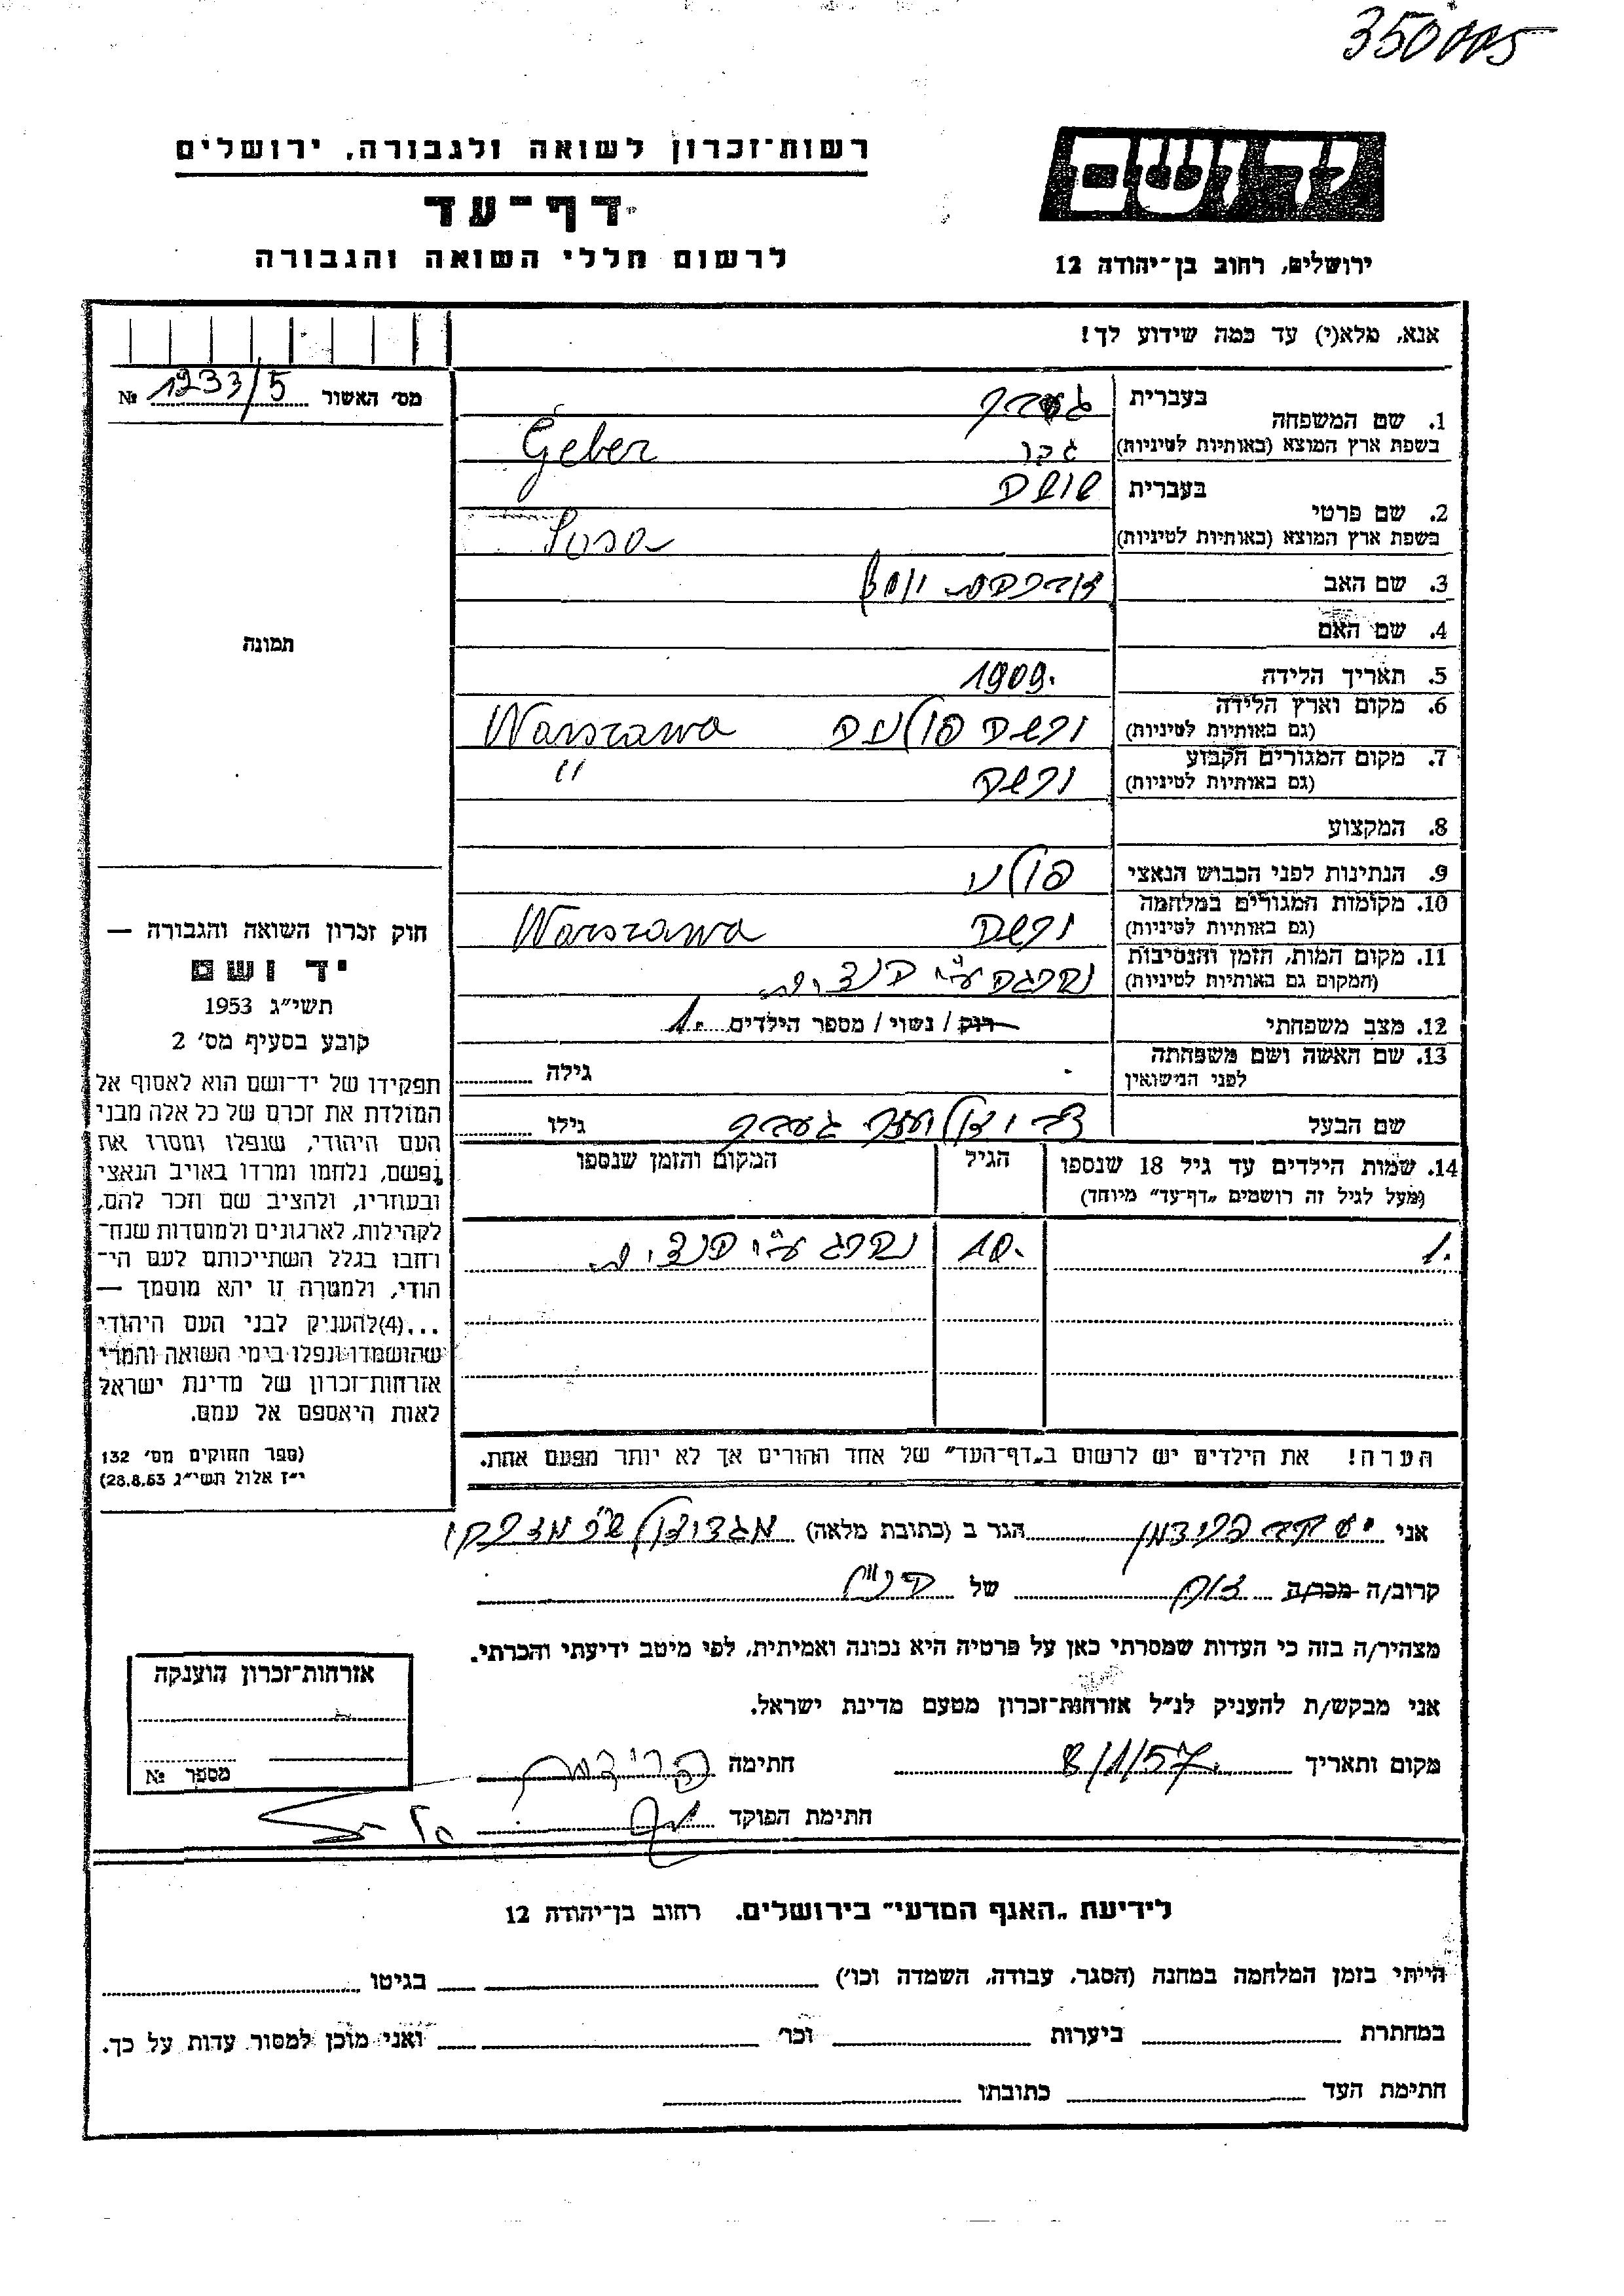 350005
רשות־זכרון לשואה ולגבורה, ירושלים
דף־עד
לרשום חללי השואה והגבורה
יד ושם
ירושלים, רחוב בן־יהודה 12
אנא, מלא(י) עד כמה שידוע לך!
מס׳ האשור 1233/5 №
1. שם המשפחה
בעברית
בשפת ארץ המוצא (באותיות לטיניות) גבר Geber
2. שם פרטי
בעברית
בשפת ארץ המוצא (באותיות לטיניות)
3. שם האב
4. שם האם
5. תאריך הלידה 1909.
6. מקום וארץ הלידה ורשה Warszawa
(גם באותיות לטיניות)
7. מקום המגורים הקבוע ורשה "
(גם באותיות לטיניות)
8. המקצוע
9. הנתינות לפני הכבוש הנאצי
10. מקומות המגורים במלחמה ורשה Warszawa
(גם באותיות לטיניות)
11. מקום המות, הזמן והנסיבות נהרגה ע״י
(המקום גם באותיות לטיניות)
12. מצב משפחתי רוק / נשוי / מספר הילדים 1.
13. שם האשה ושם משפחתה
לפני הנישואין
גילה
שם הבעל
גילו
14. שמות הילדים עד גיל 18 שנספו
(מעל לגיל זה רושמים „דף־עד״ מיוחד)
הגיל
המקום והזמן שנספו
1. 10. נהרג ע״י
הערה! את הילדים יש לרשום ב„דף־העד״ של אחד ההורים אך לא יותר מפעם אחת.
תמונה
חוק זכרון השואה והגבורה —
יד ושם
תשי״ג 1953
קובע בסעיף מס׳ 2
תפקידו של יד־ושם הוא לאסוף אל
המולדת את זכרם של כל אלה מבני
העם היהודי, שנפלו ומסרו את
נפשם, נלחמו ומרדו באויב הנאצי
ובעוזריו, ולהציב שם וזכר להם,
לקהילות, לארגונים ולמוסדות שנח־
רחבו בגלל השתייכותם לעם הי־
הודי, ולמטרה זו יהא מוסמך —
...(4)להעניק לבני העם היהודי
שהושמדו ונפלו בימי השואה והמרי
אזרחות־זכרון של מדינת ישראל
לאות היאספם אל עמם.
(ספר החוקים מס׳ 132
י״ז אלול תשי״ג 28.8.53)
אני יעקב פרידמן הגר ב (כתובת מלאה)
קרוב/ה מכר/ה של
מצהיר/ה בזה כי העדות שמסרתי כאן על פרטיה היא נכונה ואמיתית, לפי מיטב ידיעתי והכרתי.
אני מבקש/ת להעניק לנ״ל אזרחות־זכרון מטעם מדינת ישראל.
מקום ותאריך 8/1/57. חתימה
חתימת הפוקד
אזרחות־זכרון הוענקה
מספר №
לידיעת „האגף המדעי״ בירושלים. רחוב בן־יהודה 12
הייתי בזמן המלחמה במחנה (הסגר, עבודה, השמדה וכו׳) בגיטו
במחתרת ביערות וכו׳ ואני מוכן למסור עדות על כך.
חתימת העד כתובתו